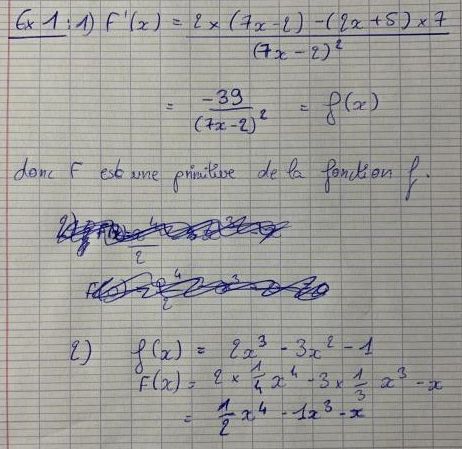 Ex 1 : 1) F'(x) = 2 × (7x-2) - (2x+5) × 7 / (7x-2)²
= -39 / (7x-2)² = f(x)
donc F est une primitive de la fonction f.
2) f(x) = 2x³ - 3x² - 1
F(x) = 2 × 1/4 x⁴ - 3 × 1/3 x³ - x
= 1/2 x⁴ - 1x³ - x